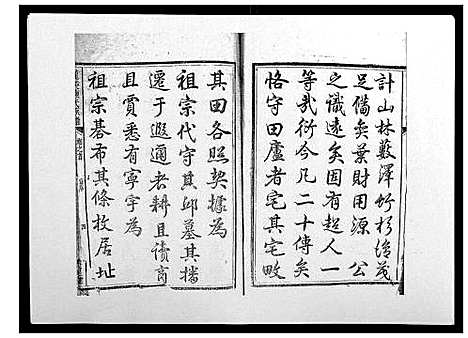 計山林藪澤竹杉猗茂
足備矣葉財用源 公
之識遠矣固有超人一
等哉衍今凡二十傳矣
恪守田廬者宅其宅畋
其田各照契據為
祖宗代守其邱墓其播
遷于遐邇者耕且讀商
且賈悉有寧宇為
祖宗棊布其條枚居址